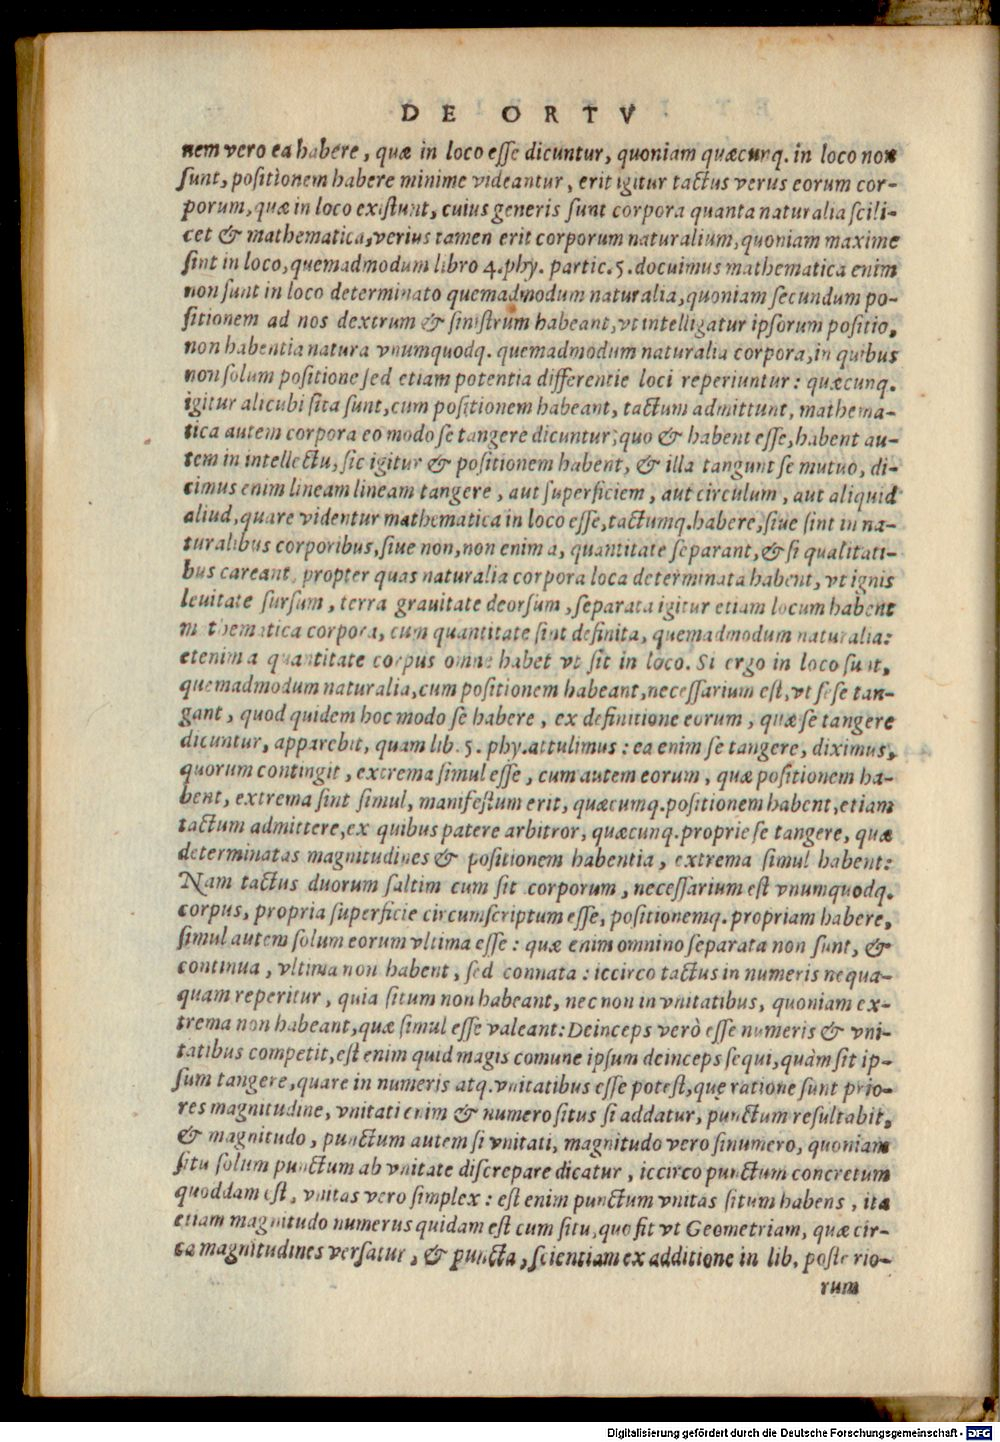 DE ORTV
nem vero ea habere, quæ in loco esse dicuntur, quoniam quæcunq. in loco non
sunt, positionem habere minime videantur, erit igitur tactus verus eorum cor-
porum, quæ in loco existunt, cuius generis sunt corpora quanta naturalia scili-
cet & mathematica, verius tamen erit corporum naturalium, quoniam maxime
sint in loco, quemadmodum libro 4. phy. partic. 5. docuimus mathematica enim
non sunt in loco determinato quemadmodum naturalia, quoniam secundum po-
sitionem ad nos dextrum & sinistrum habeant, vt intelligatur ipsorum positio,
non habentia natura vnumquodq. quemadmodum naturalia corpora, in quibus
non solum positione sed etiam potentia differentie loci reperiuntur: quæcunq.
igitur alicubi sita sunt, cum positionem habeant, tactum admittunt, mathema-
tica autem corpora eo modo se tangere dicuntur, quo & habent esse, habent au-
tem in intellectu, sic igitur & positionem habent, & illa tangunt se mutuo, di-
cimus enim lineam lineam tangere, aut superficiem, aut circulum, aut aliquid
aliud, quare videntur mathematica in loco esse, tactumq. habere, siue sint in na-
turalibus corporibus, siue non, non enim a, quantitate separant, & si qualitati-
bus careant, propter quas naturalia corpora loca determinata habent, vt ignis
leuitate sursum, terra grauitate deorsum, separata igitur etiam locum habent
mathematica corpora, cum quantitate sint definita, quemadmodum naturalia:
etenim a quantitate corpus omne habet vt sit in loco. Si ergo in loco sunt,
quemadmodum naturalia, cum positionem habeant, necessarium est, vt sese tan-
gant, quod quidem hoc modo se habere, ex definitione eorum, quæ se tangere
dicuntur, apparebit, quam lib. 5. phy. attulimus: ea enim se tangere, diximus,
quorum contingit, extrema simul esse, cum autem eorum, quæ positionem ha-
bent, extrema sint simul, manifestum erit, quæcumq. positionem habent, etiam
tactum admittere, ex quibus patere arbitror, quæcunq. proprie se tangere, quæ
determinatas magnitudines & positionem habentia, extrema simul habent:
Nam tactus duorum saltim cum sit corporum, necessarium est vnumquodq.
corpus, propria superficie circumscriptum esse, positionemq. propriam habere,
simul autem solum eorum vltima esse: quæ enim omnino separata non sunt, &
continua, vltima non habent, sed connata: iccirco tactus in numeris nequa-
quam reperitur, quia situm non habeant, nec non in vnitatibus, quoniam ex-
trema non habeant, quæ simul esse valeant: Deinceps verò esse numeris & vni-
tatibus competit, est enim quid magis comune ipsum deinceps sequi, quàm sit ip-
sum tangere, quare in numeris atq. vnitatibus esse potest, que ratione sunt prio-
res magnitudine, vnitati enim & numero situs si addatur, punctum resultabit,
& magnitudo, punctum autem si vnitati, magnitudo vero si numero, quoniam
situ solum punctum ab vnitate discrepare dicatur, iccirco punctum concretum
quoddam est, vnitas vero simplex: est enim punctum vnitas situm habens, ita
etiam magnitudo numerus quidam est cum situ, quo fit vt Geometriam, quæ cir-
ca magnitudines versatur, & puncta, scientiam ex additione in lib. posterio-
rum
Digitalisierung gefördert durch die Deutsche Forschungsgemeinschaft - DFG